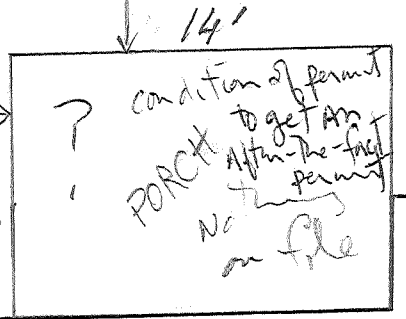 14'
?
condition of permit
to get An
After-The-fact
permit
PORCH
Nothing
on file